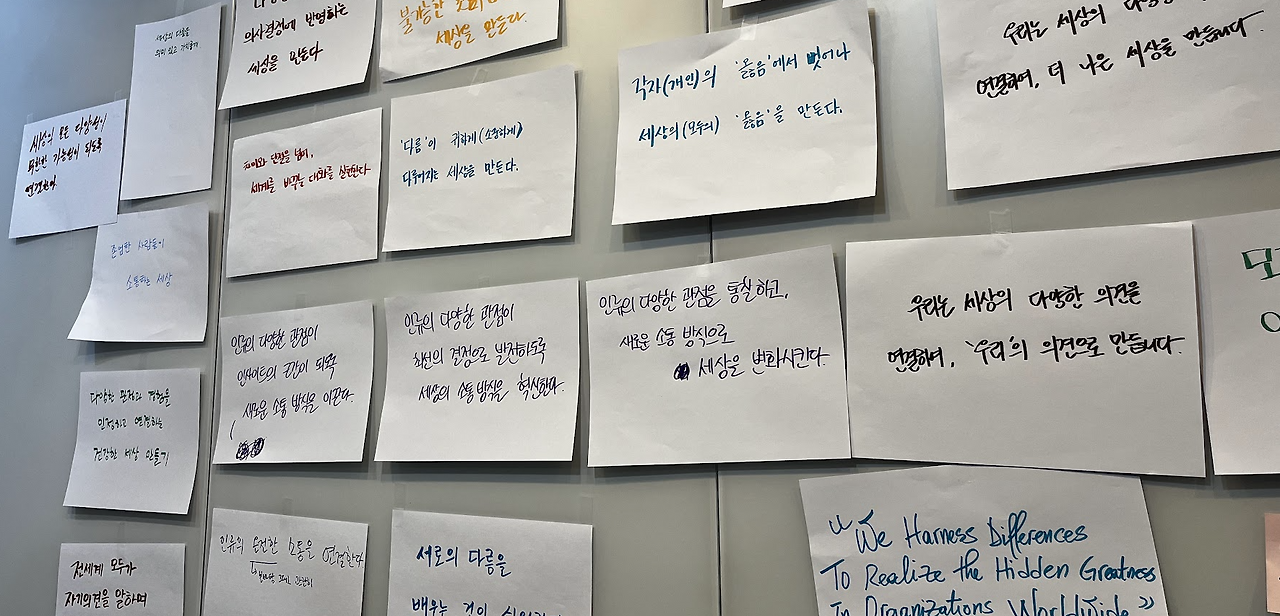 의사결정에 반영하는
세상을 만든다
불가능한
세상을 만든다.
우리는 세상의
연결하여, 더 나은 세상을 만듭니다.
각자(개인)의 '옳음'에서 벗어나
세상의(모두의) '옳음'을 만든다.
세상의 모든 다양성이
무한한 가능성이 되도록
연결한다.
세계를 바꾸는 대화를 실현한다
'다름'이 귀하게(소중하게)
다루어지는 세상을 만든다.
존엄한 사람들이
소통하는 세상
인류의 다양한 관점이
인사이트의 공간이 되도록
새로운 소통 방식을 이끈다.
인류의 다양한 관점이
최선의 결정으로 발전하도록
세상의 소통 방식을 혁신한다.
인류의 다양한 관점을 통찰하고,
새로운 소통 방식으로
세상을 변화시킨다.
우리는 세상의 다양한 의견을
연결하여, '우리'의 의견으로 만듭니다.
다양한 관점과 경험을
인정하고 연결하는
건강한 세상 만들기
전세계 모두가
자기의견을 말하며
인류의 온전한 소통을 연결한다
서로의 다름을
배우는
"We Harness Differences
To Realize the Hidden Greatness
In Organizations Worldwide"